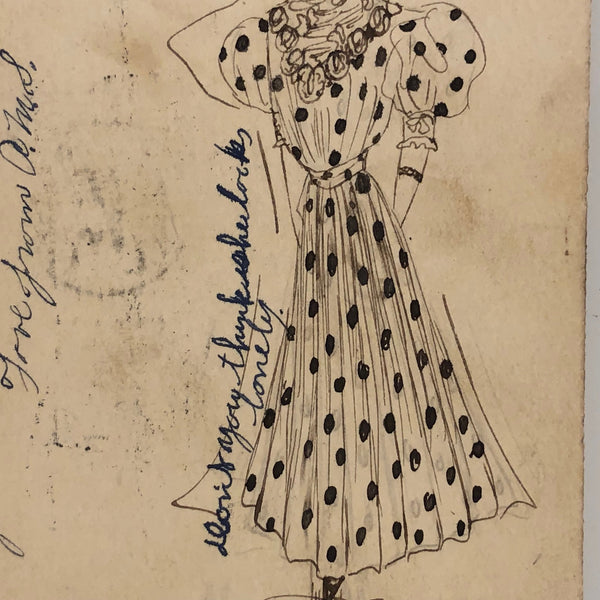 Love from A.M.S.
Don't you think she looks
lonely.